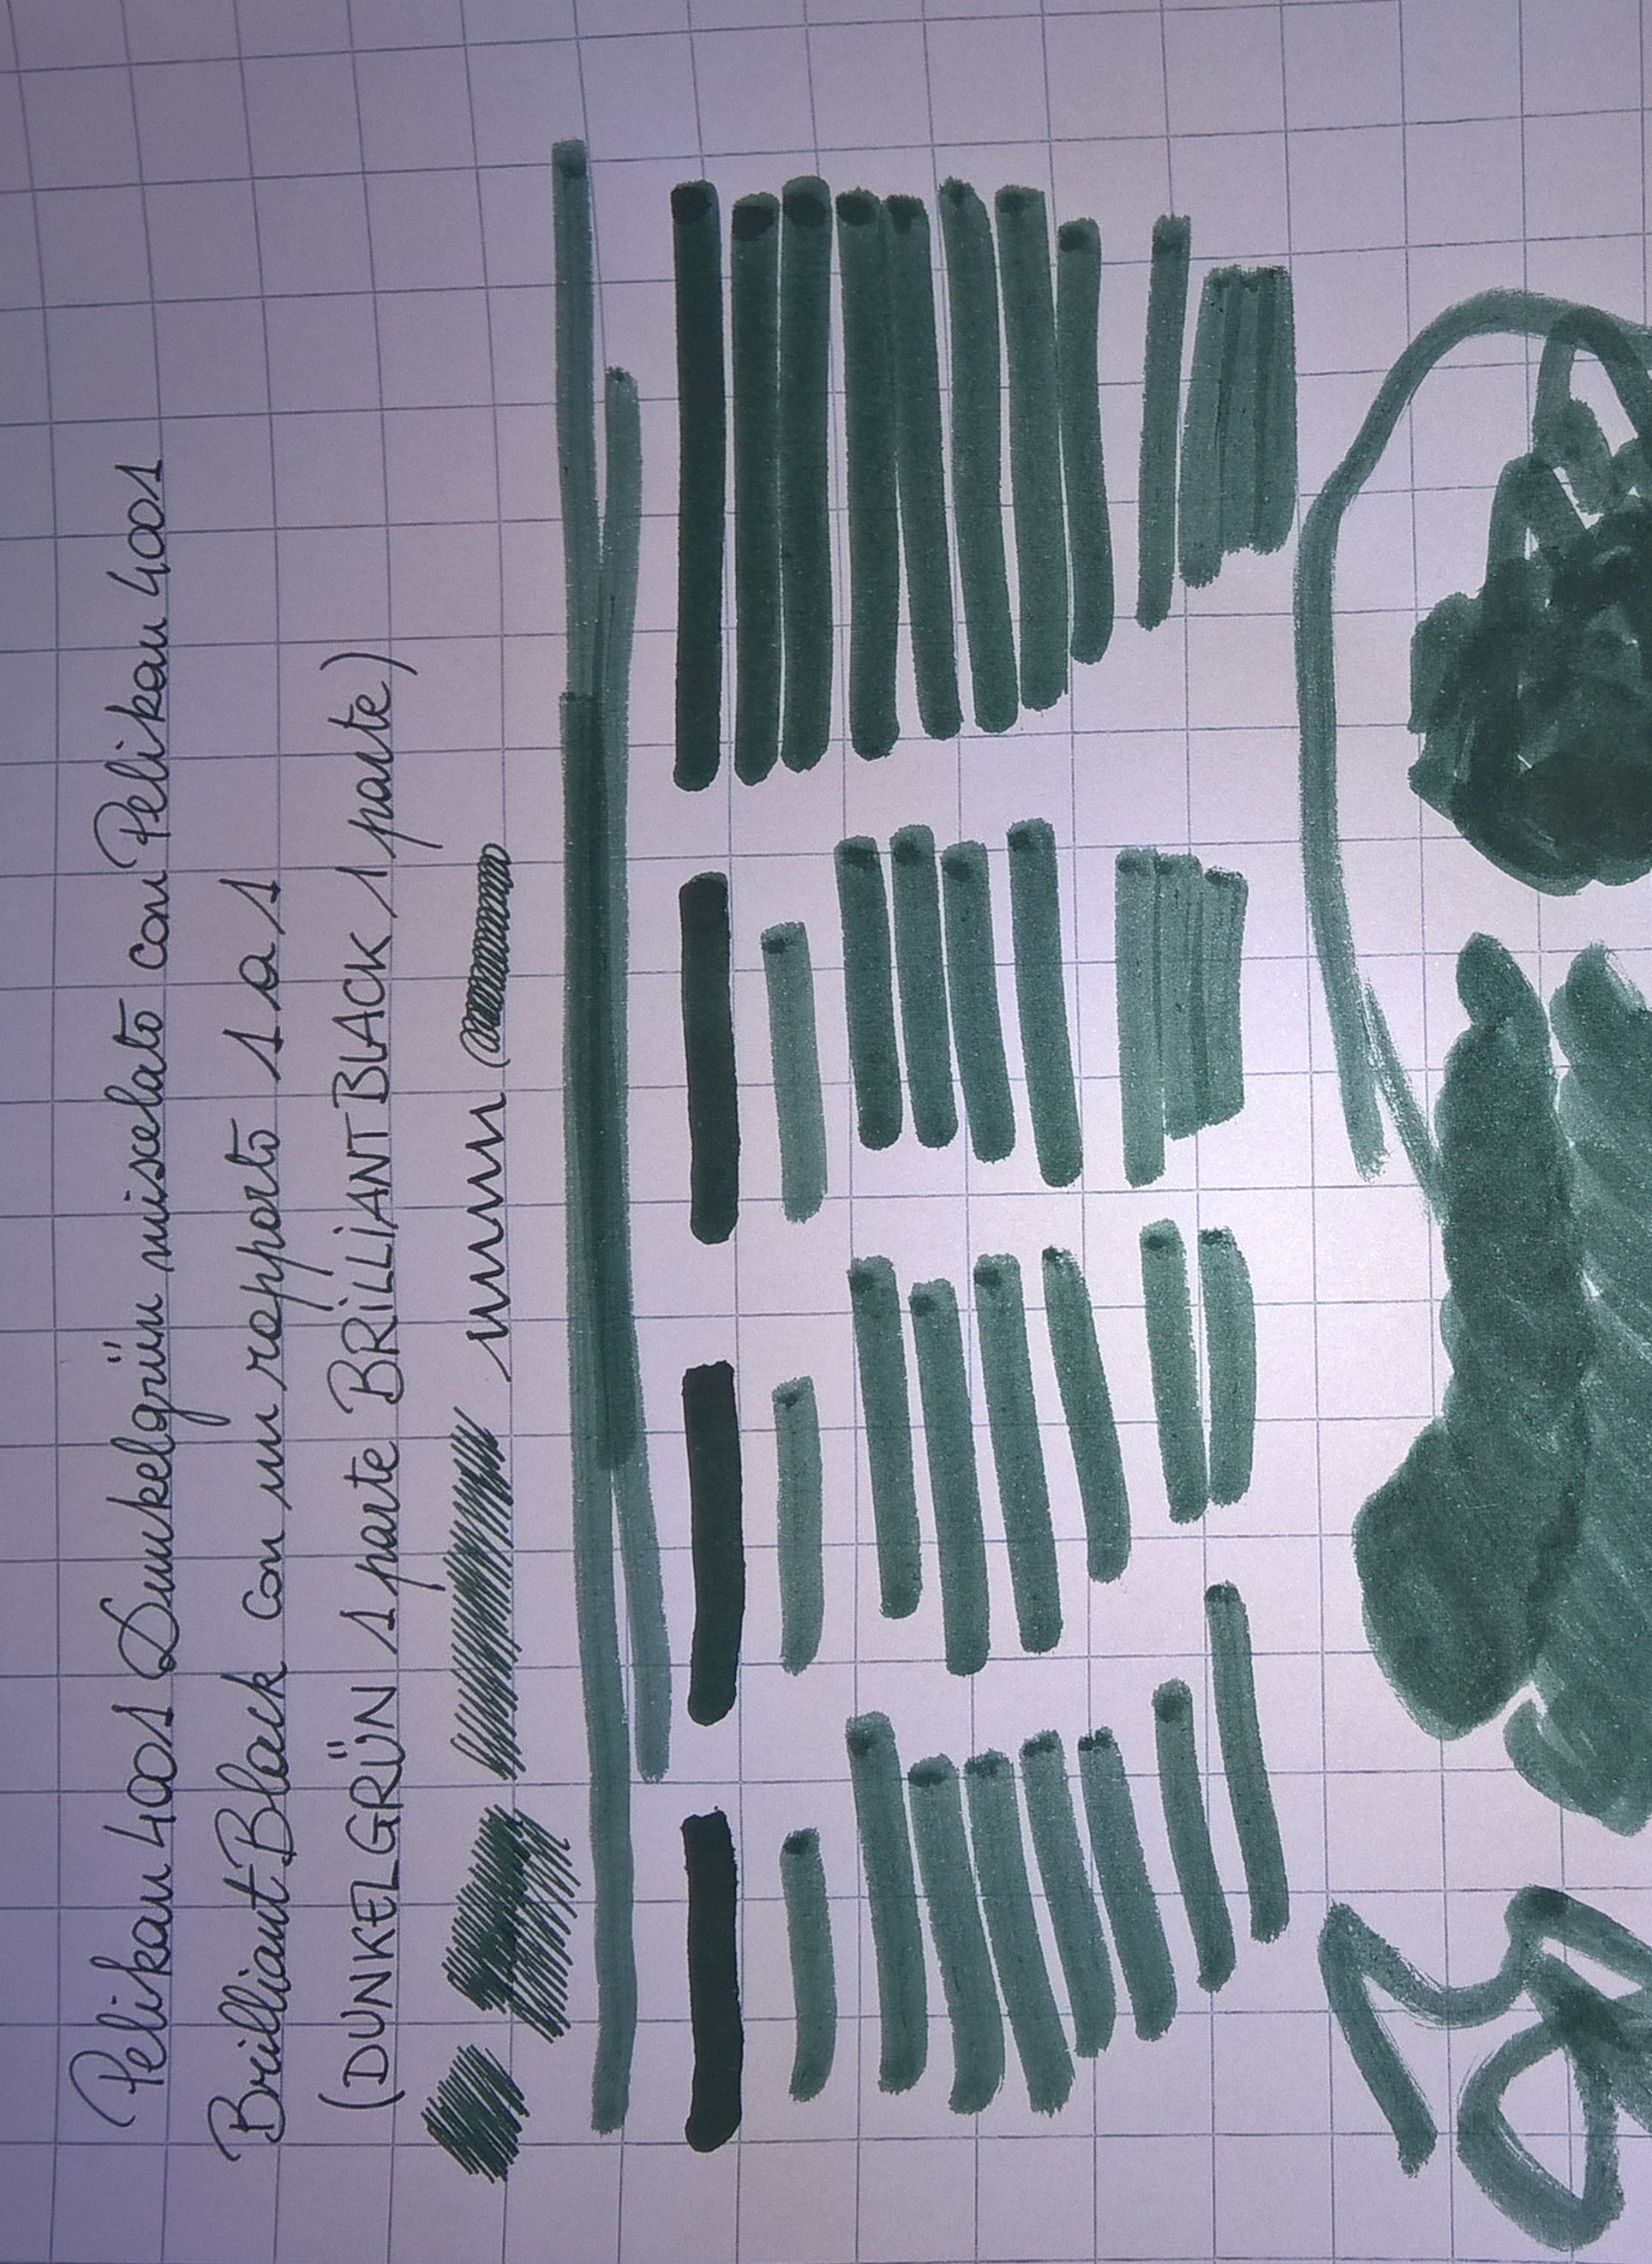 Pelikan 4001 Dunkelgrün miscelato con Pelikan 4001
Brilliant Black con un rapporto 1 a 1
(DUNKELGRÜN 1 parte BRILLIANT BLACK 1 parte)